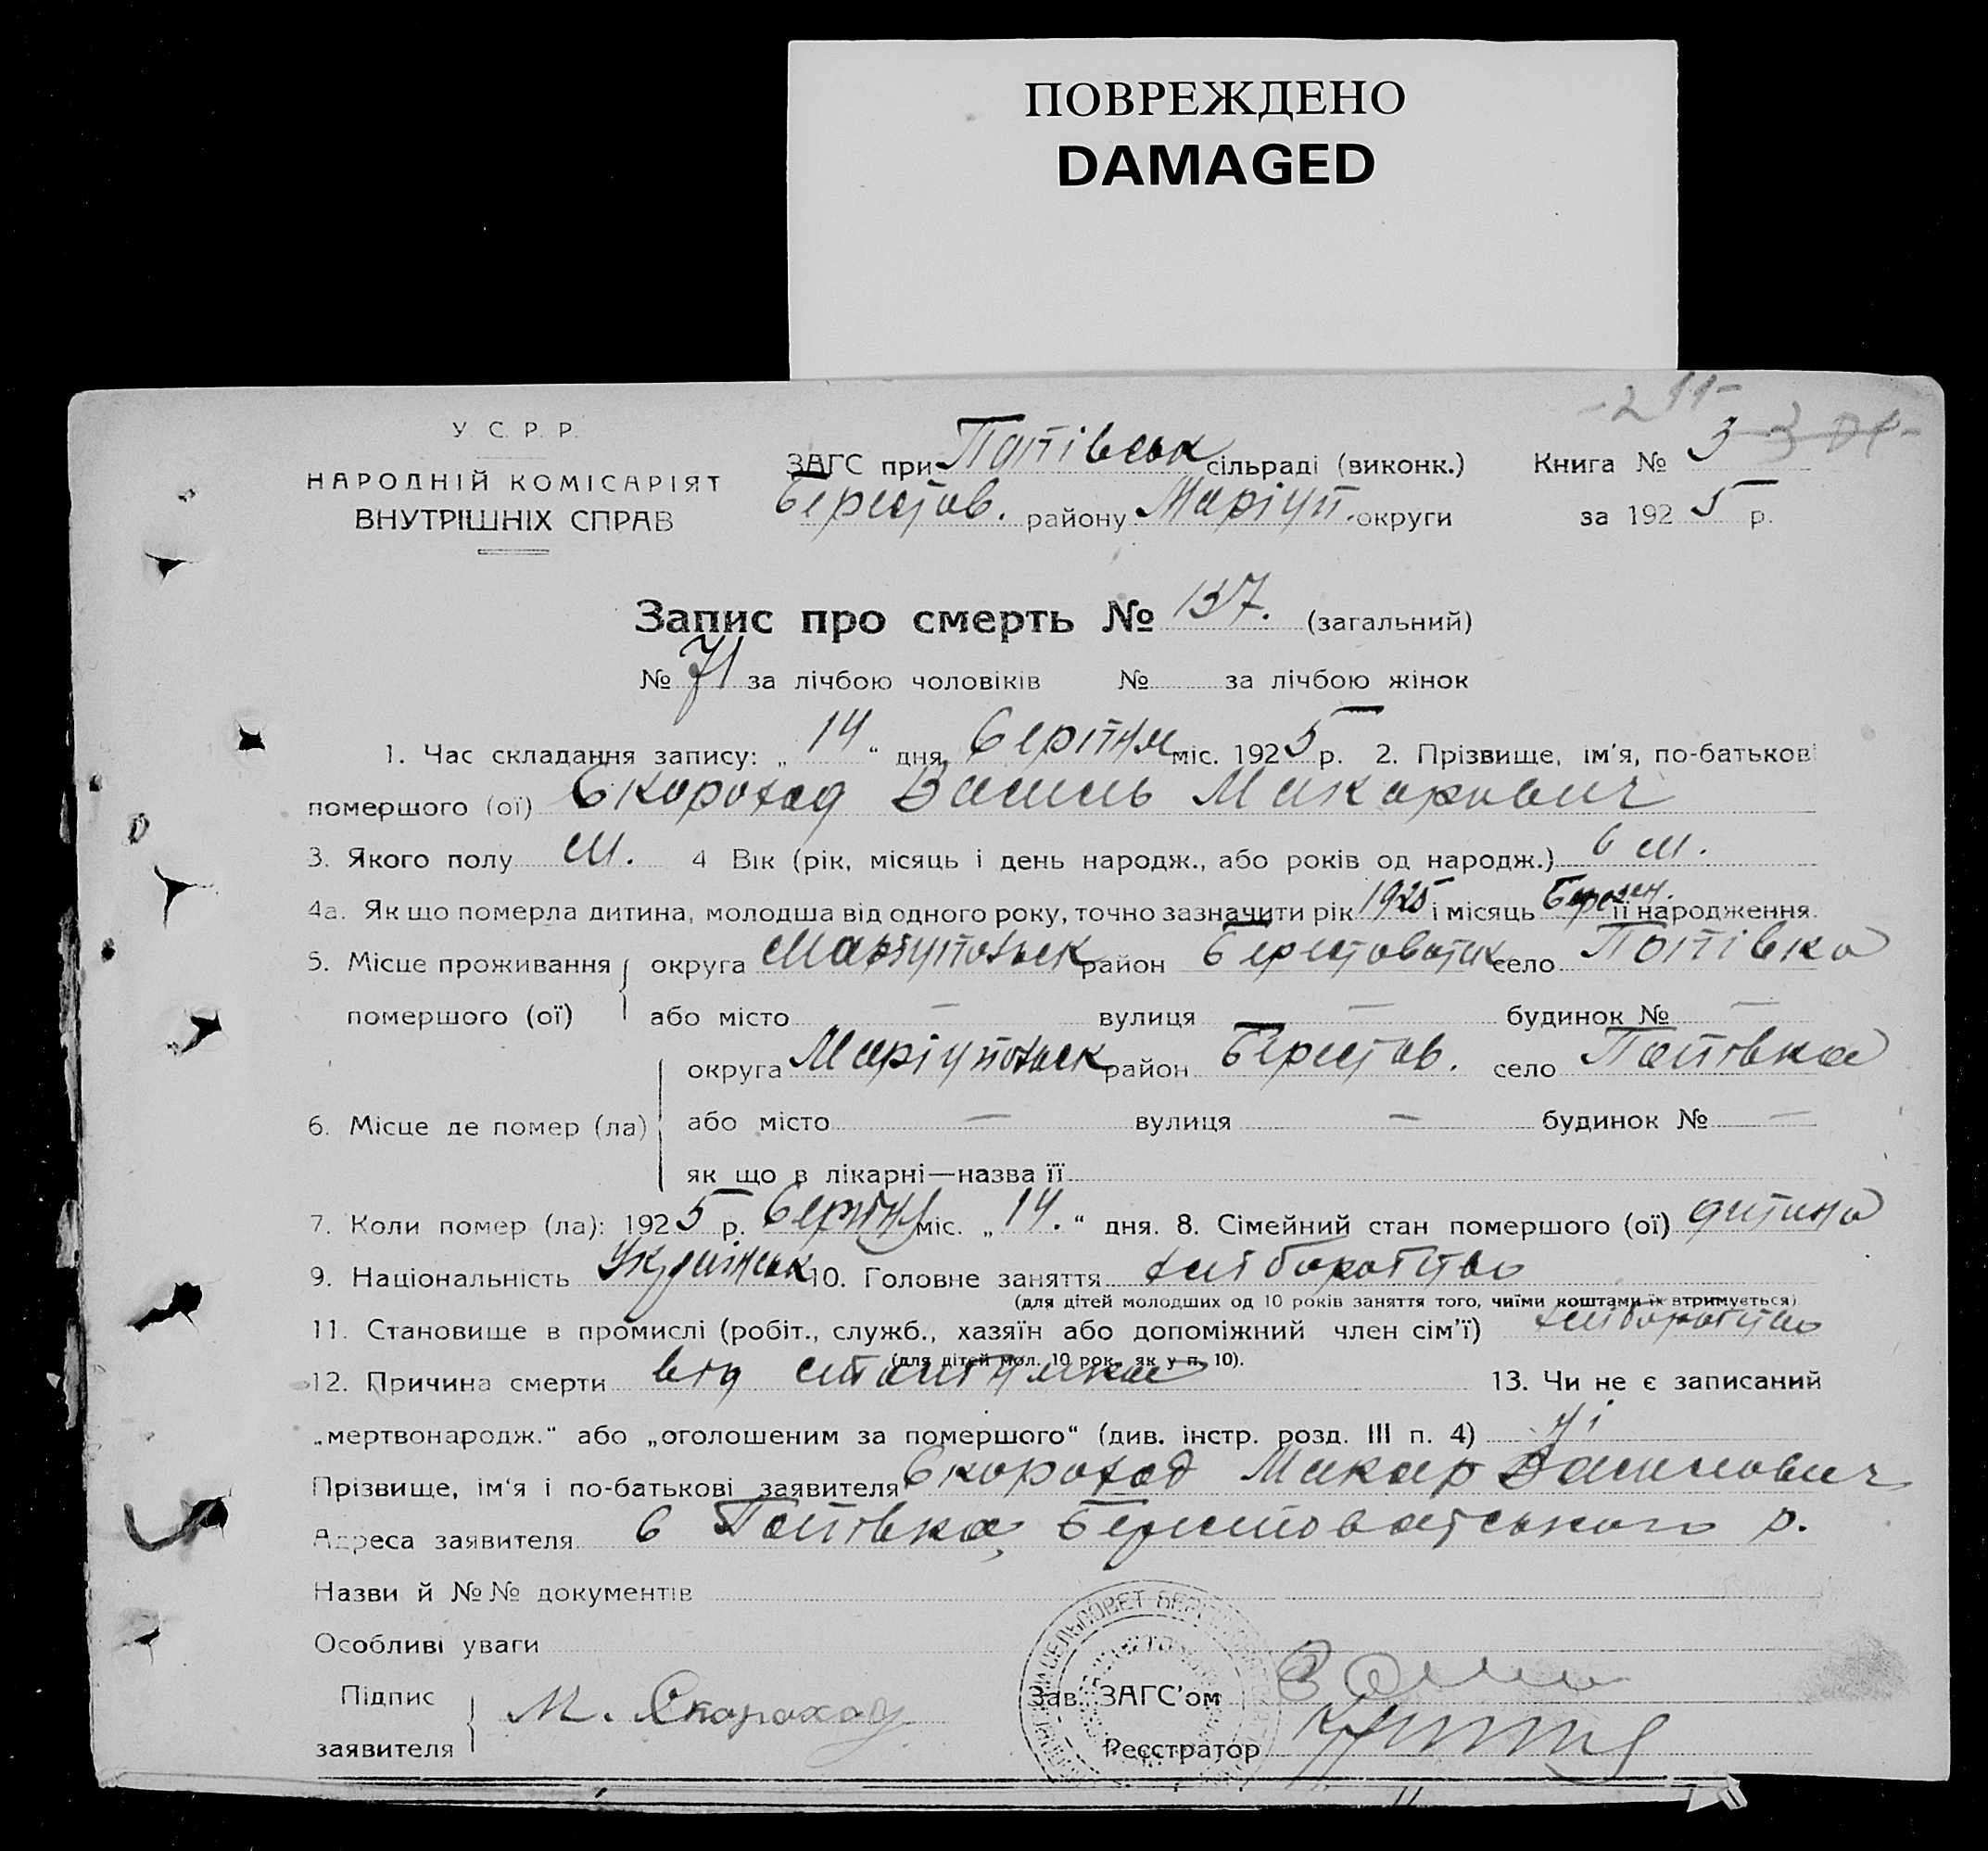 ПОВРЕЖДЕНО
DAMAGED
У. С. Р. Р.
НАРОДНІЙ КОМІСАРІЯТ
ВНУТРІШНІХ СПРАВ
ЗАГС при Попівськ сільраді (виконк.)
Берестов. району Маріуп. округи
-211-
Книга № 3
за 1925 р.
Запис про смерть № 137. (загальний)
№ 71 за лічбою чоловіків № за лічбою жінок
1. Час складання запису: „ 14 “ дня серпня міс. 1925 р. 2. Прізвище, ім'я, по-батькові
помершого (ої) Скороход Василь Макарович
3. Якого полу м. 4 Вік (рік, місяць і день народж., або років од народж.) 6 м.
4а. Як що померла дитина, молодша від одного року, точно зазначити рік 1925 і місяць Березен. її народження.
5. Місце проживання округа Маріупольськ район Берестоватськ село Попівка
помершого (ої) або місто — вулиця — будинок № —
округа Маріупольськ район Берестов. село Попівка
6. Місце де помер (ла) або місто — вулиця — будинок № —
як що в лікарні—назва її
7. Коли помер (ла): 1925 р. серпня міс. „ 14. “ дня. 8. Сімейний стан помершого (ої) дитина
9. Національність Українськ 10. Головне заняття хліборобство
(для дітей молодших од 10 років заняття того, чиїми коштами їх втримується)
11. Становище в промислі (робіт., служб., хазяїн або допоміжний член сім'ї) хліборобство
(для дітей мол. 10 рок. як у п. 10).
12. Причина смерти від 13. Чи не є записаний
„мертвонародж.“ або „оголошеним за помершого“ (див. інстр. розд. III п. 4) ні
Прізвище, ім'я і по-батькові заявителя Скороход Макар Васильович
Адреса заявителя с Попівка, Берестоватського р.
Назви й №№ документів
Особливі уваги
Підпис
заявителя М. Скороход
Зав. ЗАГС'ом
Реєстратор